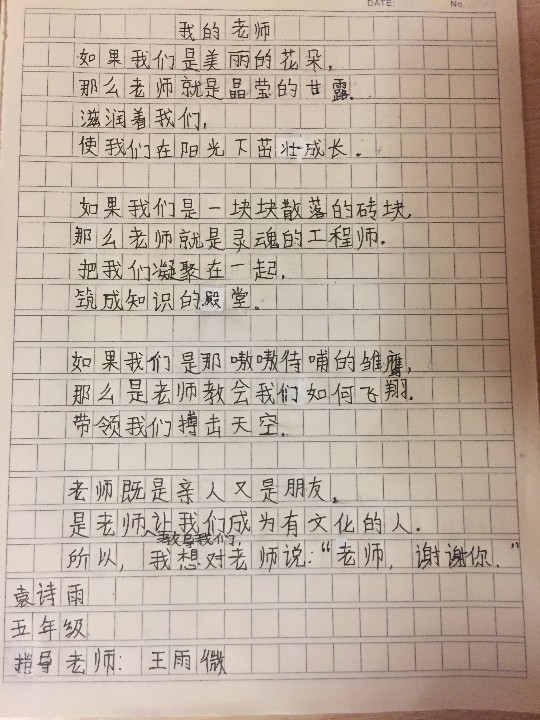 DATE: No.
我的老师
如果我们是美丽的花朵,
那么老师就是晶莹的甘露.
滋润着我们,
使我们在阳光下茁壮成长.
如果我们是一块块散落的砖块,
那么老师就是灵魂的工程师.
把我们凝聚在一起,
筑成知识的殿堂.
如果我们是那嗷嗷待哺的雏鹰,
那么是老师教会我们如何飞翔.
带领我们搏击天空.
老师既是亲人又是朋友,
是老师让我们成为有文化的人.
教导我们,
所以,我想对老师说:“老师,谢谢你.”
袁诗雨
五年级
指导老师:王雨微